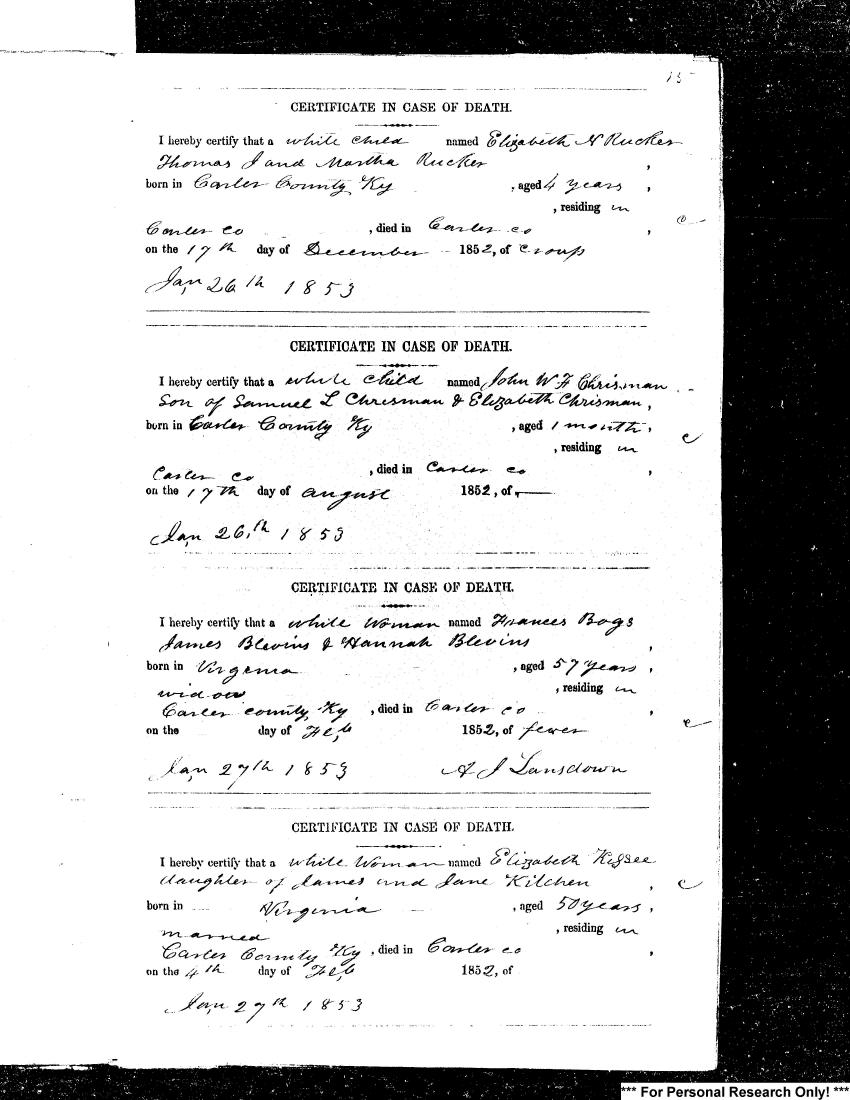 15
CERTIFICATE IN CASE OF DEATH.
I hereby certify that a white child named Elizabeth N Rucker
Thomas J and Martha Rucker ,
born in Carter County Ky , aged 4 years ,
, residing in
Carter Co , died in Carter co ,
on the 17th day of December 1852, of croup
Jan 26th 1853
CERTIFICATE IN CASE OF DEATH.
I hereby certify that a white child named John W F Chrisman
Son of Samuel L Chrisman & Elizabeth Chrisman,
born in Carter County Ky , aged 1 month,
, residing in
Carter Co , died in Carter co ,
on the 17th day of august 1852, of —
Jan 26th 1853
CERTIFICATE IN CASE OF DEATH.
I hereby certify that a white Woman named Frances Bogs
James Blevins & Hannah Blevins ,
born in Virginia , aged 57 years ,
widow , residing in
Carter county Ky , died in Carter co ,
on the day of Feb 1852, of fever
Jan 27th 1853 A J Lansdown
CERTIFICATE IN CASE OF DEATH.
I hereby certify that a white Woman named Elizabeth Kissee
daughter of James and Jane Kitchen ,
born in Virginia , aged 50 years ,
married , residing in
Carter County Ky , died in Carter co ,
on the 4th day of Feb 1852, of
Jan 27th 1853
*** For Personal Research Only! ***